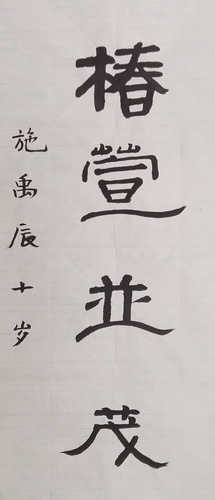 椿萱並茂
施禹辰十岁